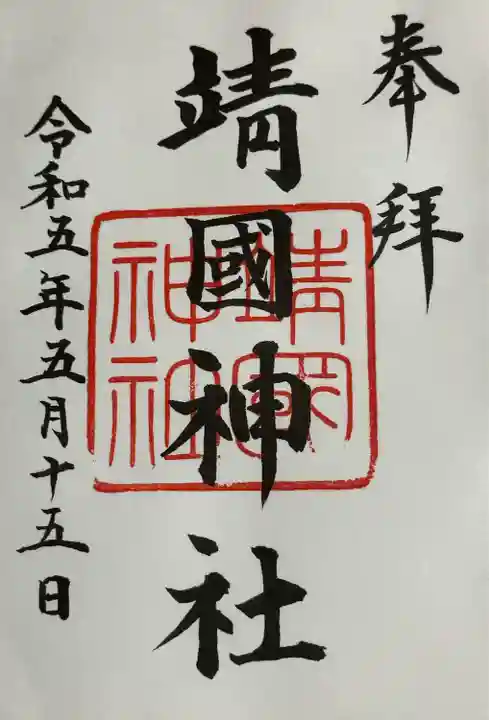 奉拝
靖國神社
靖國
神社
令和五年五月十五日